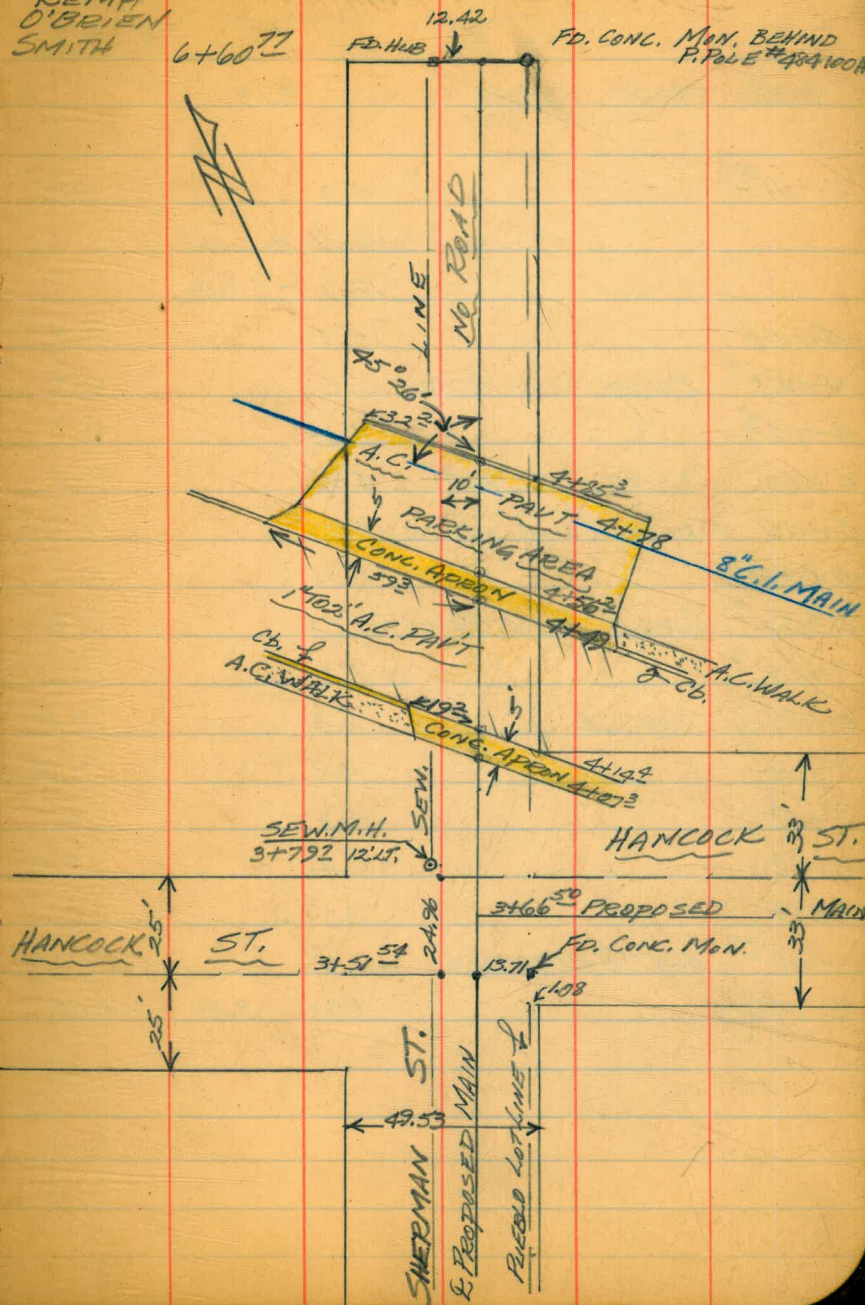 O'BRIEN
SMITH
6+60 77
12.42
FD. HUB
FD. CONC. MON. BEHIND
P. POLE #484100H
LINE
NO ROAD
45° 26'
32 2
A.C.
PAVT
10'
4+85 3
4+78
5'
PARKING AREA
8" C.I. MAIN
CONC. APRON
4+56 2
59 3
4+49
1" TO 2" A.C. PAV'T
A.C. WALK
Cb.
Cb.
A.C. WALK
19 3
5'
CONC. APRON
4+14 4
4+07 3
SEW.
SEW. M.H.
3+79 2 12' LT.
HANCOCK ST.
33'
3+66 50 PROPOSED MAIN
24.96
25'
HANCOCK ST.
3+51 54
13.71
FD. CONC. MON.
33'
1.08
25'
49.53
SHERMAN ST.
℄ PROPOSED MAIN
PUEBLO LOT LINE